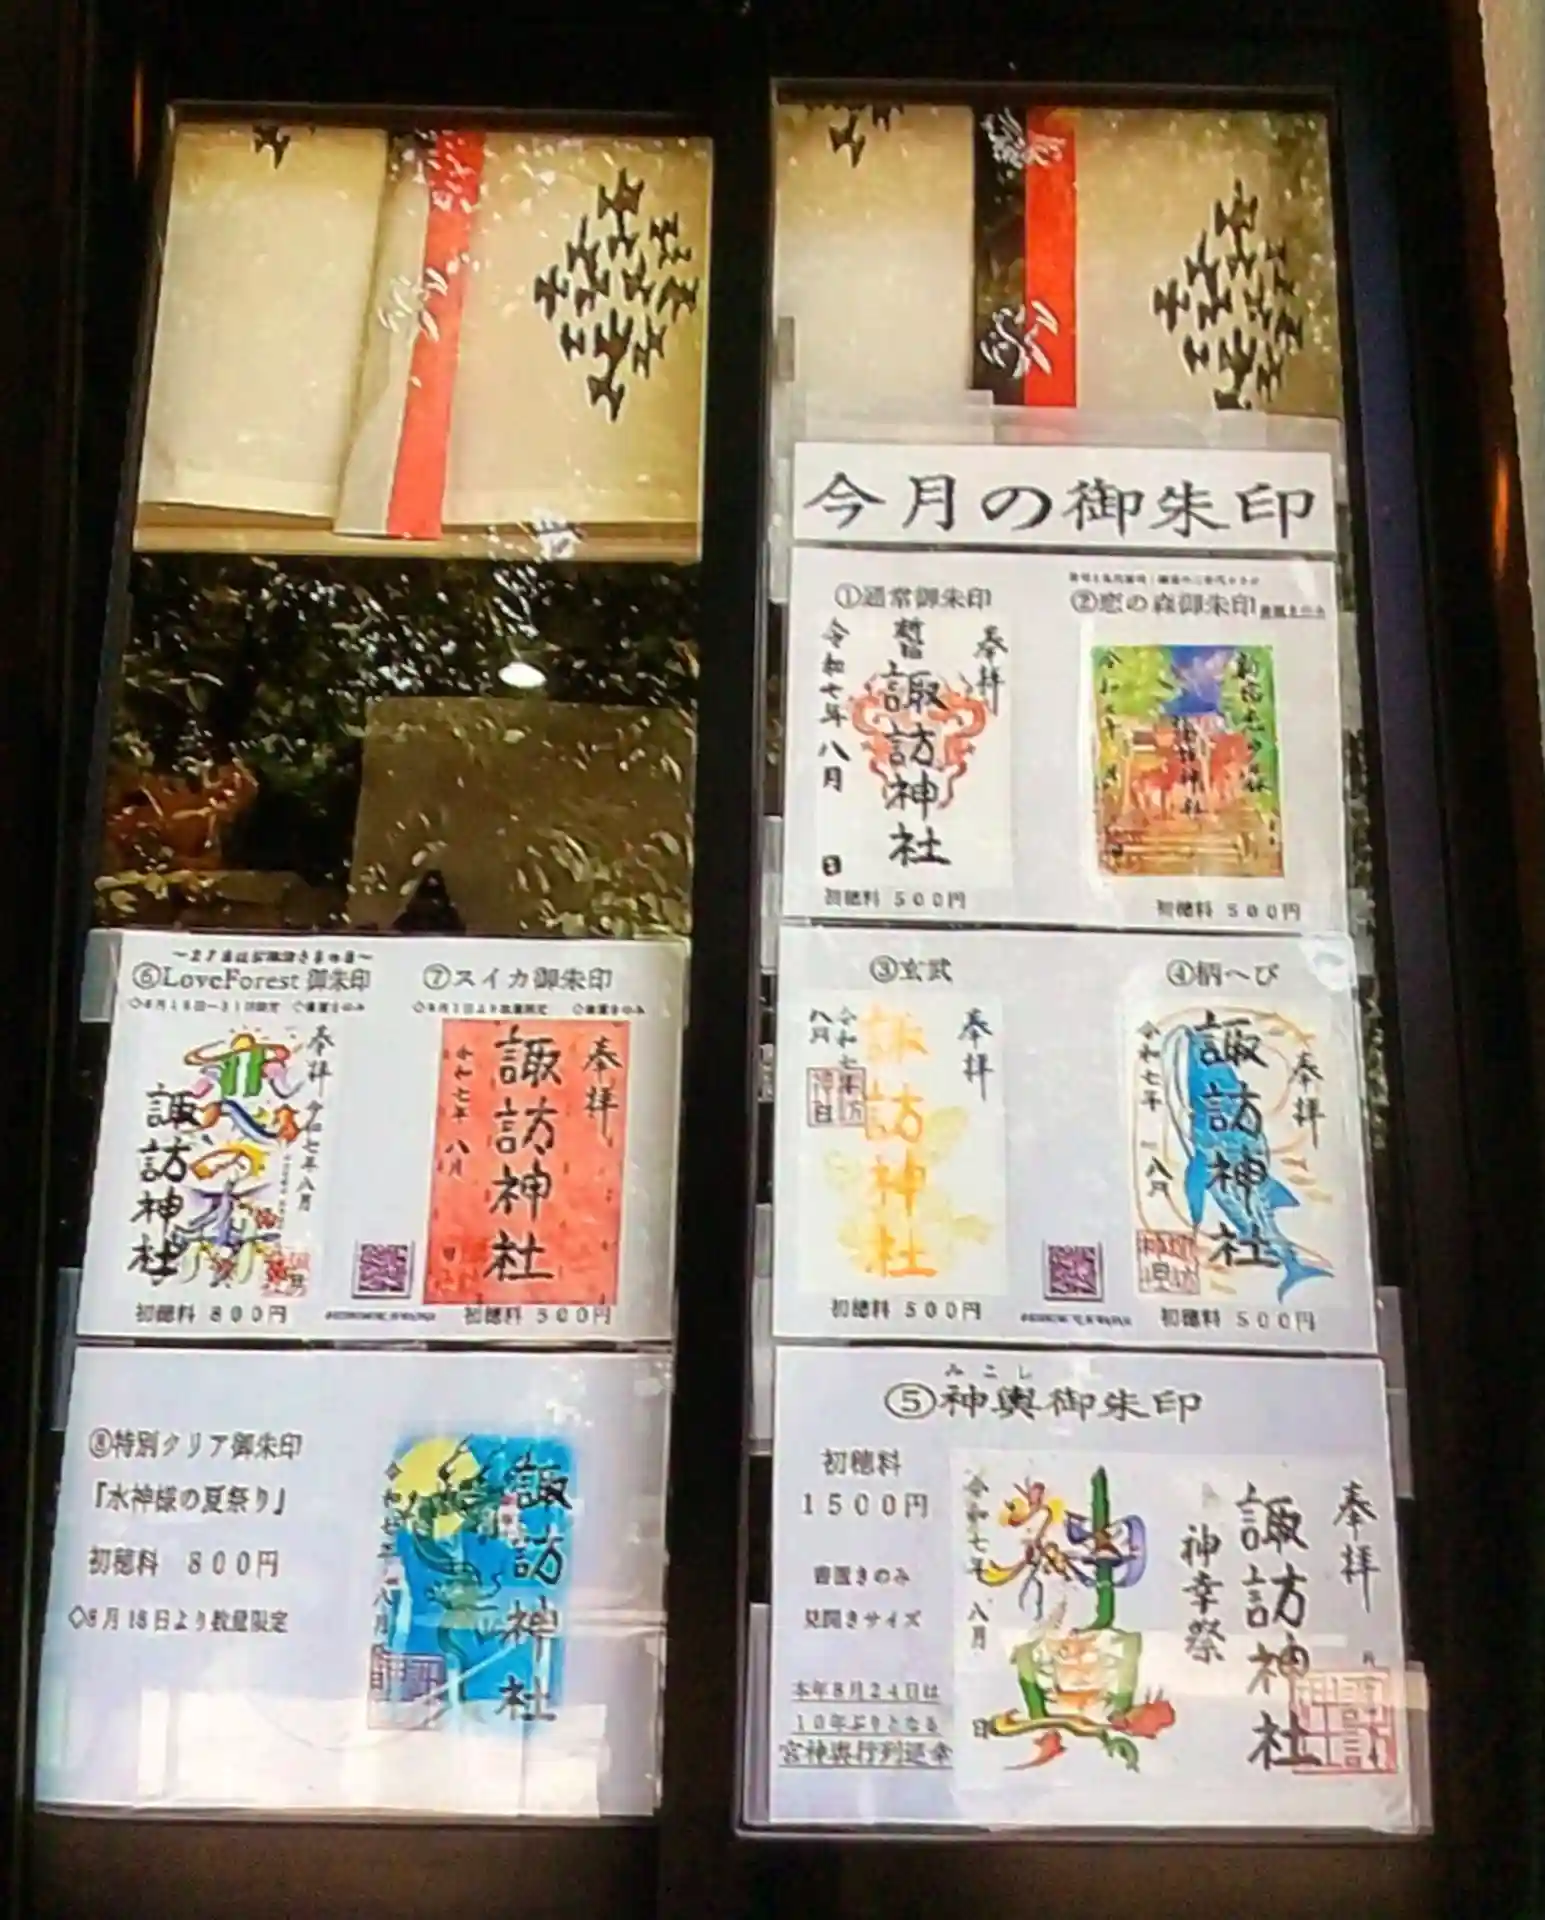 今月の御朱印
①通常御朱印
奉拝
諏訪神社
令和七年八月
日
初穂料 500円
②恋の森御朱印
初穂料 500円
③玄武
奉拝
諏訪神社
令和七年
八月
初穂料 500円
④柄へび
奉拝
諏訪神社
令和七年 八月
初穂料 500円
みこし
⑤神輿御朱印
初穂料
1500円
書置きのみ
見開きサイズ
本年8月24日は
10年ぶりとなる
宮神輿行列巡幸
奉拝
諏訪神社
神幸祭
令和七年 八月
日
⑥LoveForest 御朱印
奉拝 令和七年八月
諏訪神社
初穂料 800円
⑦スイカ御朱印
奉拝
諏訪神社
令和七年 八月 日
初穂料 500円
⑧特別クリア御朱印
『水神様の夏祭り』
初穂料 800円
◇8月18日より数量限定
諏訪神社
令和七年 八月